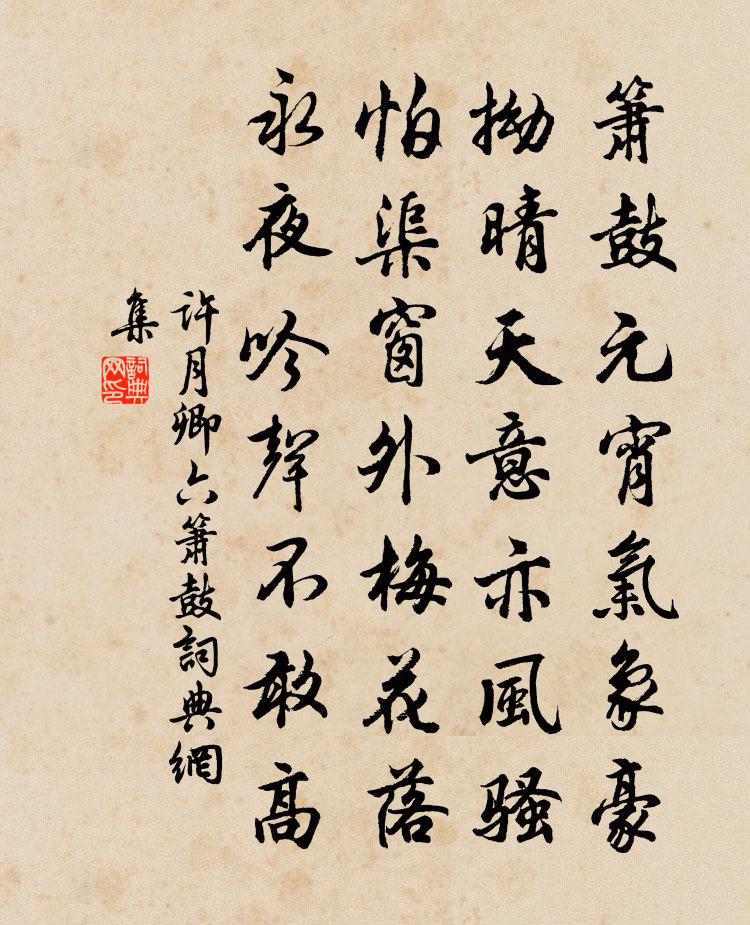 簫鼓元宵氣象豪
拗晴天意亦風騷
怕渠窗外梅花落
永夜吟聲不敢高
許月卿六簫鼓詞典網
集
詞典網印